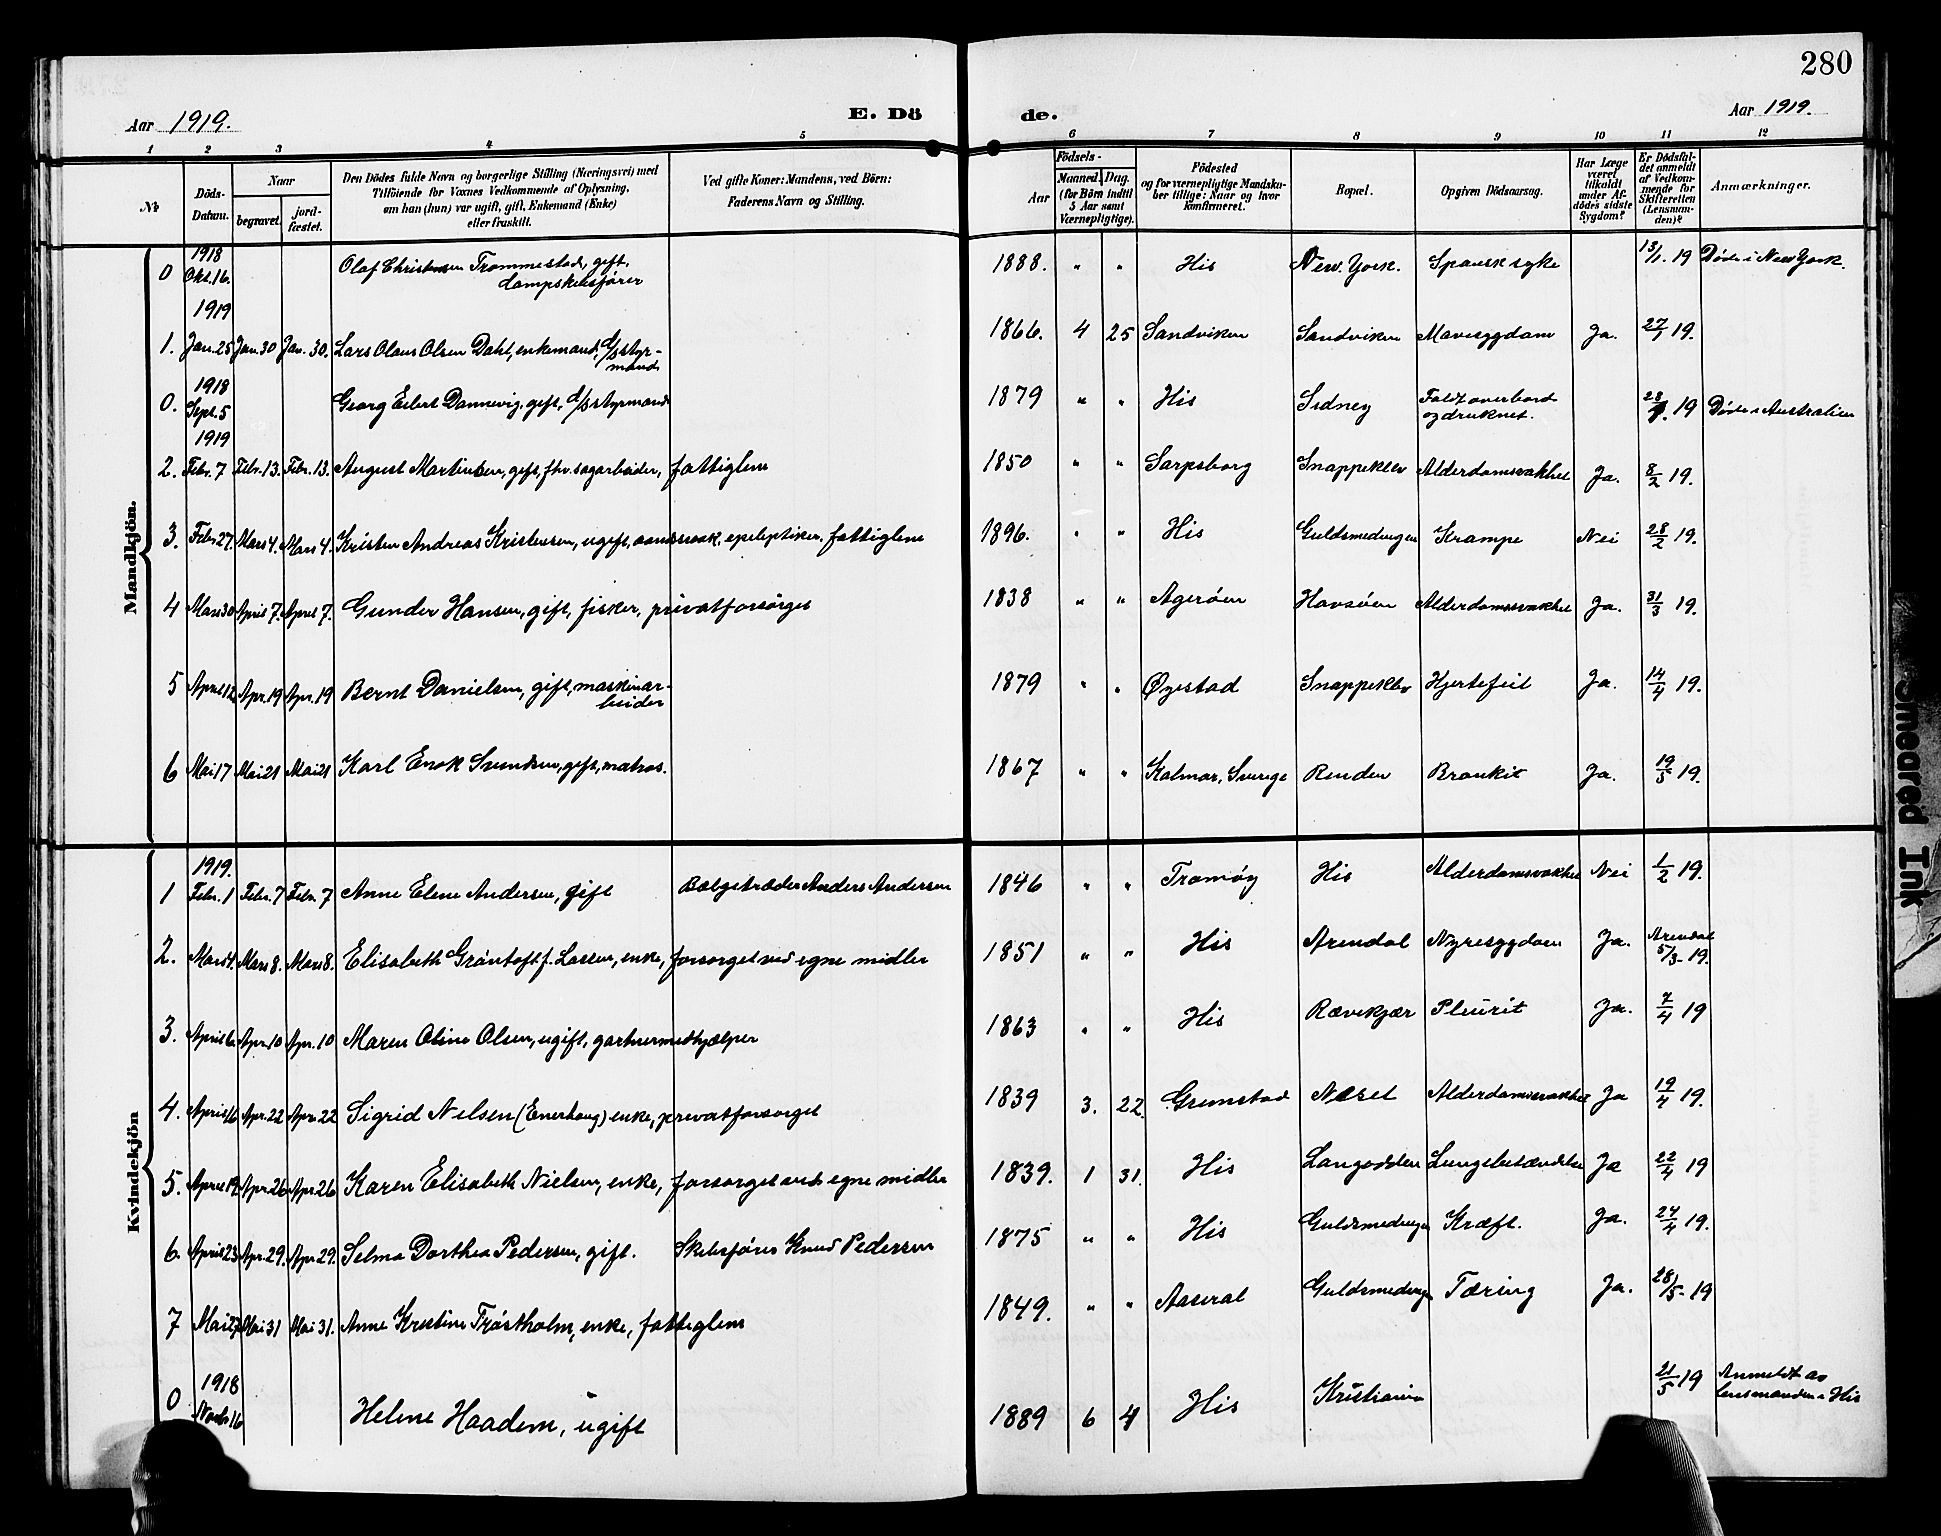 280
Aar 1919.
E. Dö
de.
Aar 1919.
1 2 3 4 5 6 7 8 9 10 11 12
№
Döds-
Datum.
Naar
begravet.
jord-
fæstet.
Den Dödes fulde Navn og borgerlige Stilling (Næringsvei) med
Tilföiende for Voxnes Vedkommende af Oplysning,
om han (hun) var ugift, gift, Enkemand (Enke)
eller fraskilt.
Ved gifte Koner: Mandens, ved Börn:
Faderens Navn og Stilling.
Födsels-
Aar
Maaned.
Dag.
(for Börn indtil
5 Aar samt
Værnepligtige).
Födested
og for værnepligtige Mandska-
ber tillige: Naar og hvor
konfirmeret.
Bopæl.
Opgiven Dödsaarsag.
Har Læge
været
tilkaldt
under Af-
dödes sidste
Sygdom?
Er Dödsfal-
det anmeldt
af Vedkom-
mende for
Skifteretten
(Lensman-
den)?
Anmærkninger.
Mandkjön.
1918
0 Okt. 16. Olaf Christensen Trommestad, gift, 1888. " " His New York. Spansk syke 13/1. 19 Døde i New York.
dampskibsfører
1919
1. Jan. 25 Jan. 30 Jan. 30. Lars Olaus Olsen Dahl, enkemand, D/S styr- 1866. 4 25 Sandviken Sandviken Mavesygdom Ja. 27/1 19.
mand
1918
0. Sept. 5 Georg Eilert Dannevig, gift, D/S styrmand 1879 " " His Sidney Faldt overbord 28/1. 19 Døde i Australien
og druknet.
1919
2. Febr. 7 Febr. 13. Febr. 13. August Martinsen, gift, fhv. sagarbeider, fattiglem 1850 " " Sarpsborg Snappeklev Alderdomssvakhet Ja. 8/2 19.
3. Febr. 27. Mars 4. Mars 4. Kristen Andreas Kristensen, ugift, aandssvak, epileptiker. fattiglem 1896. " " His Guldsmedengen Krampe Nei 28/2 19.
4 Mars 30 April 7. April 7. Gunder Hansen, gift, fisker, privatforsørget 1838 " " Agerøen Havsøen Alderdomssvakhet Ja. 31/3 19.
5 April 12 Apr. 19 Apr. 19 Bernt Danielsen, gift, maskinar- 1879 " " Øyestad Snappeklev Hjertefeil Ja. 14/4 19.
beider
6 Mai 17 Mai 21 Mai 21 Karl Enok Svendsen, gift, matros. 1867 " " Kalmar, Sverige Renden Bronkit Ja. 19/5 19.
Kvindekjön
1919.
1 Febr. 1 Febr. 7 Febr. 7 Anne Elene Andersen, gift Bælgetræder Anders Andersen 1846 " " Tromøy His Alderdomsvakhet Nei 1/2 19.
2. Mars 4. Mars 8. Mars 8. Elisabeth Grøntoft f. Larsen, enke, forsørget ved egne midler 1851 " " His Arendal Nyresygdom Ja. Arendal
5/3-19.
3. April 6. Apr. 10 Apr. 10 Maren Oline Olsen, ugift, gartnermedhjælper 1863 " " His Rævekjær Pleurit Ja. 7/4 19
4. April 16 Apr. 22 Apr. 22 Sigrid Nilsen (Enerhaug) enke, privatforsørget 1839 3. 22. Grimstad Neset Alderdomssvakhet Ja 19/4 19.
5. April 19 Apr. 26 Apr. 26 Karen Elisabeth Nielsen, enke, forsørget ved egne midler 1839. 1 31. His Langodden Lungebetændelse Ja 22/4 19
6. April 23 Apr. 29. Apr. 29. Selma Dorthea Pedersen, gift. Skibsfører Knud Pedersen 1875 " " His Guldsmedengen Kræft. Ja. 24/4 19.
7 Mai 27 Mai 31 Mai 31. Anne Kristine Trøstholm, enke, fattiglem 1849. " " Aaseral Guldsmedengen Tæring Ja. 28/5-19
1918
0 Novbr 16 Helene Haadem, ugift 1889 6 4 His Kristiania 21/5 19 Anmeldt av
lensmanden i His
Smeared Ink